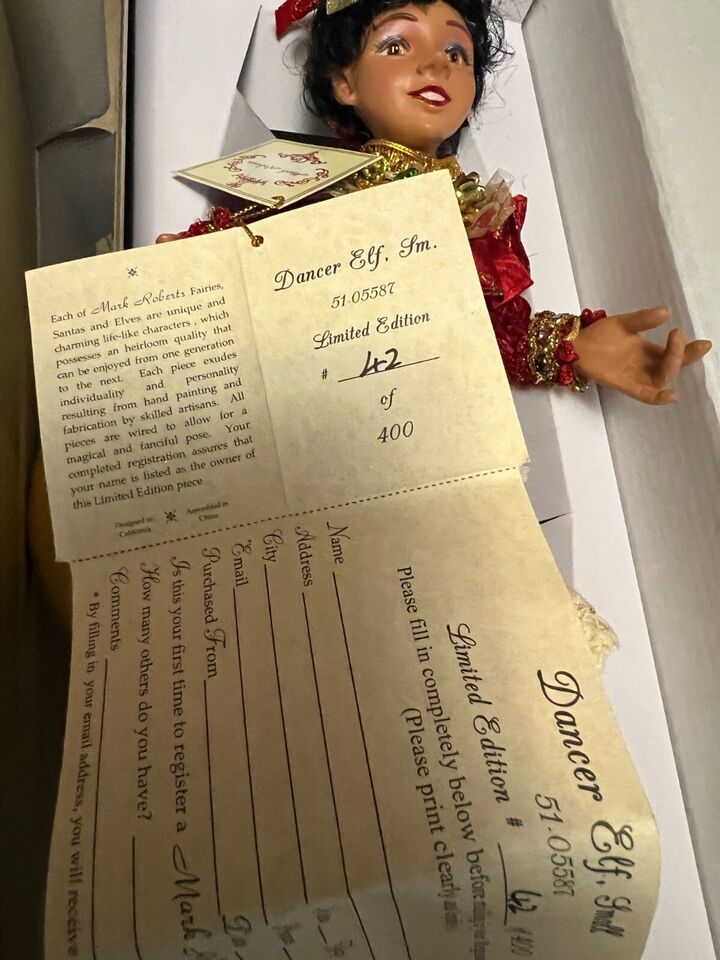 Each of Mark Roberts Fairies,
Santas and Elves are unique and
charming life-like characters , which
possesses an heirloom quality that
can be enjoyed from one generation
to the next. Each piece exudes
individuality and personality
resulting from hand painting and
fabrication by skilled artisans. All
pieces are wired to allow for a
magical and fanciful pose. Your
completed registration assures that
your name is listed as the owner of
this Limited Edition piece.
Designed in
California
Assembled in
China
Dancer Elf, Sm.
51-05587
Limited Edition
# 42
of
400
Dancer Elf, Small
51-05587
Limited Edition # 42 400
Please fill in completely below before
(Please print clearly
Name
Address
City
Email
Purchased From
Is this your first time to register a Mark
How many others do you have?
Comments
* By filling in your email address, you will receive